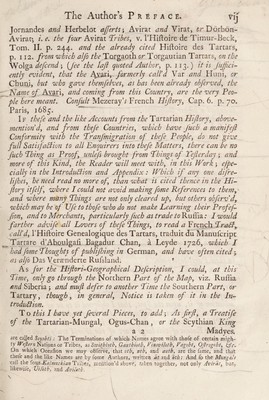 The Author's PREFACE. vij
Jornandes and Herbelot asserts; Avirar and Virat, or Dürbön-
Avirat; i. e. the four Avirat Tribes, v. l'Histoire de Timur-Beck,
Tom. II. p. 244. and the already cited Histoire des Tartars,
p. 112. from which also the Torgaoth or Torgautian Tartars, on the
Wolga descend; (see the last quoted Author, p. 113.) it is suffici-
ently evident, that the Avari, formerly call'd Var and Huni, or
Chuni, but who gave themselves, as has been already observed, the
Name of Avari, and coming from this Country, are the very Peo-
ple here meant. Consult Mezeray's French History, Cap. 6. p. 70.
Paris, 1685.
If these and the like Accounts from the Tartarian History, above-
mention'd, and from these Countries, which have such a manifest
Conformity with the Transmigration of these People, do not give
full Satisfaction to all Enquirers into these Matters, there can be no
such Thing as Proof, unless brought from Things of Yesterday; and
more of this Kind, the Reader will meet with, in this Work, espe-
cially in the Introduction and Appendix: Which if any one disre-
lishes, he need read no more of, than what is cited thence in the Hi-
story itself, where I could not avoid making some References to them,
and where many Things are not only cleared up, but others observ'd,
which may be of Use to those who do not make Learning their Profes-
sion, and to Merchants, particularly such as trade to Russia: I would
farther advise all Lovers of these Things, to read a French Tract,
call'd, l'Histoire Genealogique des Tartars, traduit du Manuscript
Tartare d'Aboulgasi Bagadur Chan, à Leyde 1726, which I
had some Thoughts of publishing in German, and have often cited;
as also Das Veränderte Russland.
As for the Histori-Geographical Description, I could, at this
Time, only go through the Northern Part of the Map, viz. Russia
and Siberia; and must defer to another Time the Southern Part, or
Tartary, though, in general, Notice is taken of it in the In-
troduction.
To this I have yet several Pieces, to add; As first, a Treatise
of the Tartarian-Mungal, Ogus-Chan, or the Scythian King
a 2 Madyes.
are called The Terminations of which Names agree with those of certain migh-
ty Western Nations or Tribes, as
On which Occasion we may observe, that and are the same, and that
these and the like Names are by some Authors, written and And so the
call the four Tribes, mention'd above, when together, not only but,
likewise,